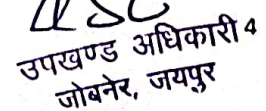 उपखण्ड अधिकारी 4
जोबनेर, जयपुर